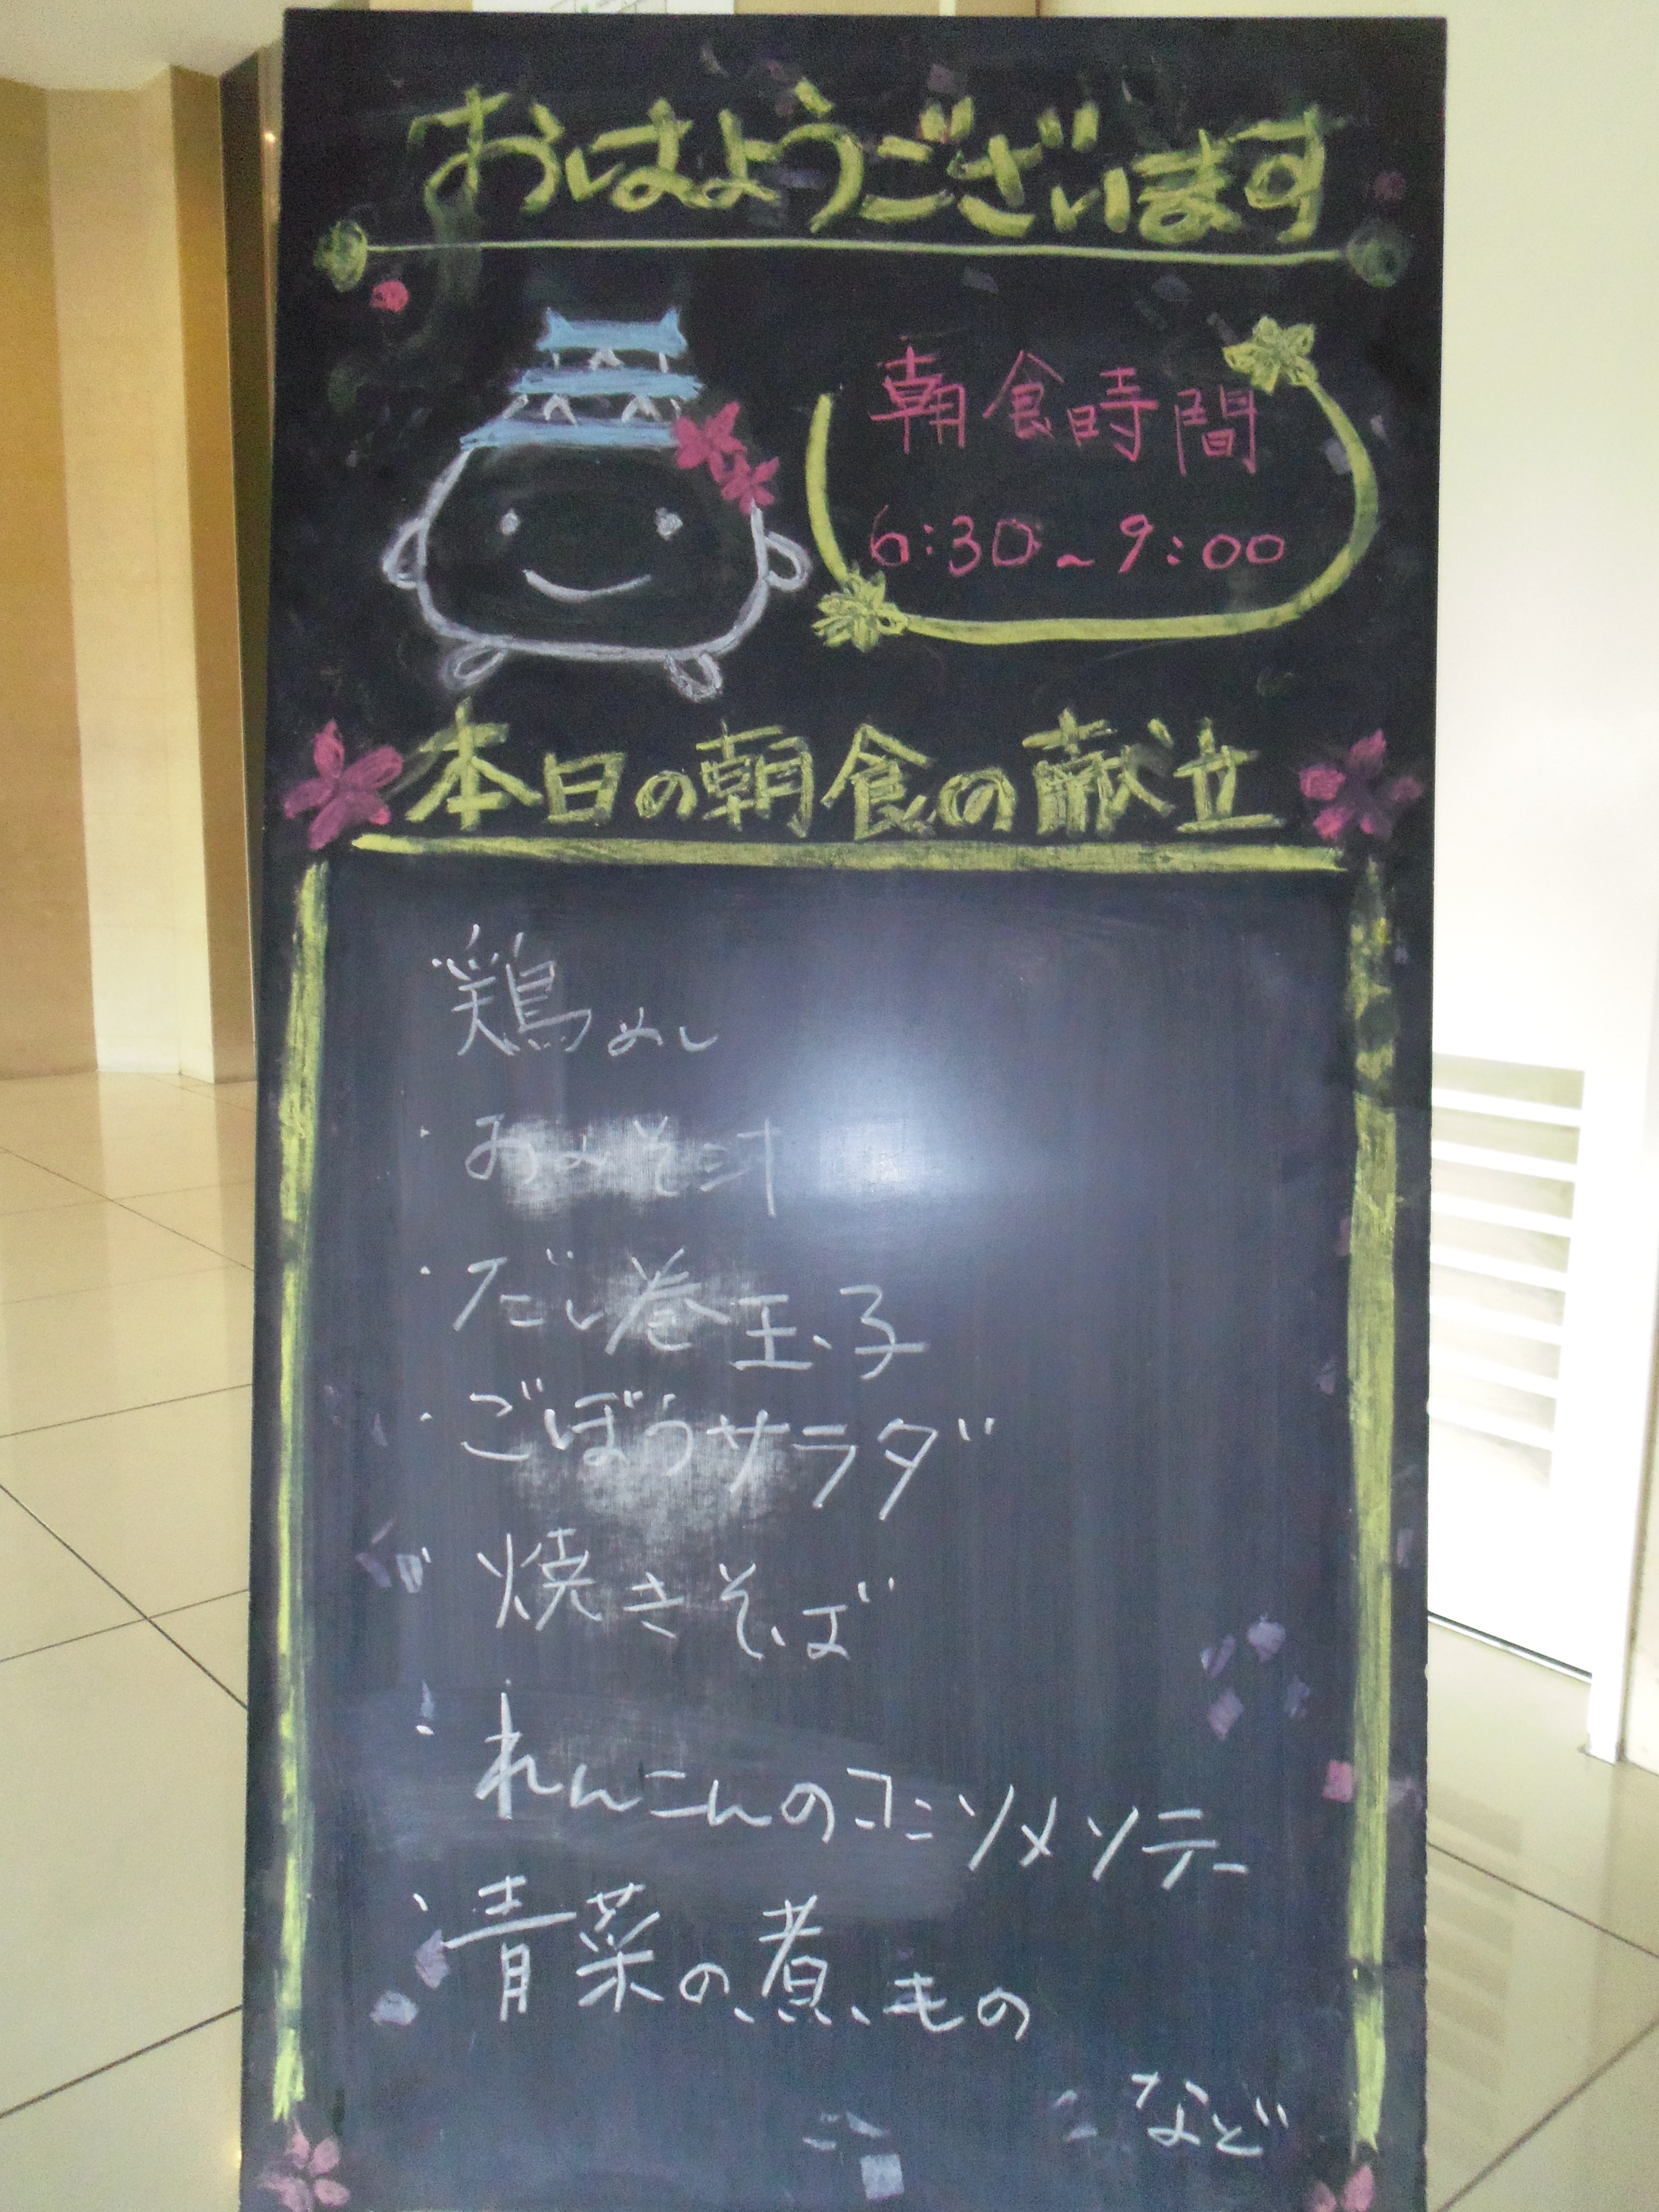 おはようございます
朝食時間
6:30~9:00
本日の朝食の献立
・鶏めし
・おみそ汁
・だし巻玉子
・ごぼうサラダ
・焼きそば
・れんこんのコンソメソテー
・青菜の煮もの
など